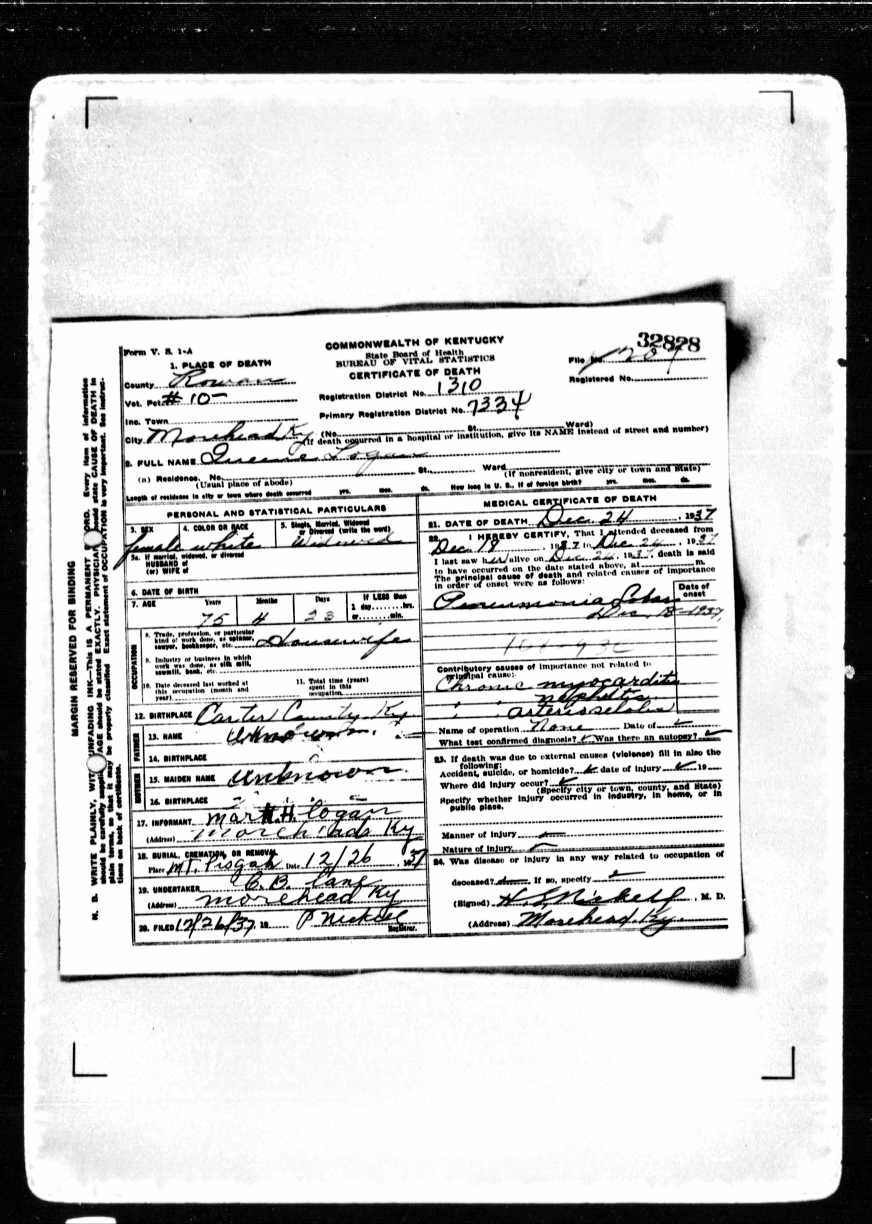 MARGIN RESERVED FOR BINDING
N. B. WRITE PLAINLY, WITH UNFADING INK—THIS IS A PERMANENT RECORD. Every item of information
should be carefully supplied. AGE should be stated EXACTLY. PHYSICIANS should state CAUSE OF DEATH in
plain terms, so that it may be properly classified. Exact statement of OCCUPATION is very important. See instruc-
tions on back of certificate.
32828
Form V. S. 1-A
COMMONWEALTH OF KENTUCKY
State Board of Health
BUREAU OF VITAL STATISTICS
CERTIFICATE OF DEATH
File No.
Registered No.
1. PLACE OF DEATH
County Rowan
Vot. Pct. # 10-
Registration District No. 1310
Primary Registration District No. 7334
Inc. Town
City Morehead Ky (No. St. Ward)
(If death occurred in a hospital or institution, give its NAME instead of street and number)
2. FULL NAME Logan
(a) Residence. No. St. Ward
(Usual place of abode) (If nonresident, give city or town and State)
Length of residence in city or town where death occurred yrs. mos. ds. How long in U. S., if of foreign birth? yrs. mos. ds.
PERSONAL AND STATISTICAL PARTICULARS
3. SEX 4. COLOR OR RACE 5. Single, Married, Widowed
or Divorced (write the word)
female white Widowed
5a. If married, widowed, or divorced
HUSBAND of
(or) WIFE of
6. DATE OF BIRTH
7. AGE Years Months Days If LESS than
1 day, hrs.
or min.
75 4 23
OCCUPATION
8. Trade, profession, or particular
kind of work done, as spinner,
sawyer, bookkeeper, etc. Housewife
9. Industry or business in which
work was done, as silk mill,
sawmill, bank, etc.
10. Date deceased last worked at
this occupation (month and
year)
11. Total time (years)
spent in this
occupation
12. BIRTHPLACE Carter County Ky
FATHER
13. NAME Unknown
14. BIRTHPLACE
MOTHER
15. MAIDEN NAME Unknown
16. BIRTHPLACE
17. INFORMANT H. Logan
(Address) Morehead Ky
18. BURIAL, CREMATION, OR REMOVAL
Place Mt. Pisgah Date 12/26, 1937
19. UNDERTAKER C. B. Lane
(Address) Morehead Ky
20. FILED 12/26/37, 19 Registrar.
MEDICAL CERTIFICATE OF DEATH
21. DATE OF DEATH Dec. 24, 1937
22. I HEREBY CERTIFY, That I attended deceased from
1937 to Dec 24, 1937
I last saw her alive on Dec 24, 1937, death is said
to have occurred on the date stated above, at m.
The principal cause of death and related causes of importance
in order of onset were as follows:
Date of
onset
Pneumonia Lobar
Dec 18-1937
Contributory causes of importance not related to
principal cause:
Chronic myocarditis
" nephritis
"
Name of operation None Date of
What test confirmed diagnosis? Was there an autopsy?
23. If death was due to external causes (violence) fill in also the
following:
Accident, suicide, or homicide? date of injury 19
Where did injury occur?
(Specify city or town, county, and State)
Specify whether injury occurred in industry, in home, or in
public place.
Manner of injury
Nature of injury
24. Was disease or injury in any way related to occupation of
deceased? If so, specify
(Signed) Nickell, M. D.
(Address) Morehead Ky.